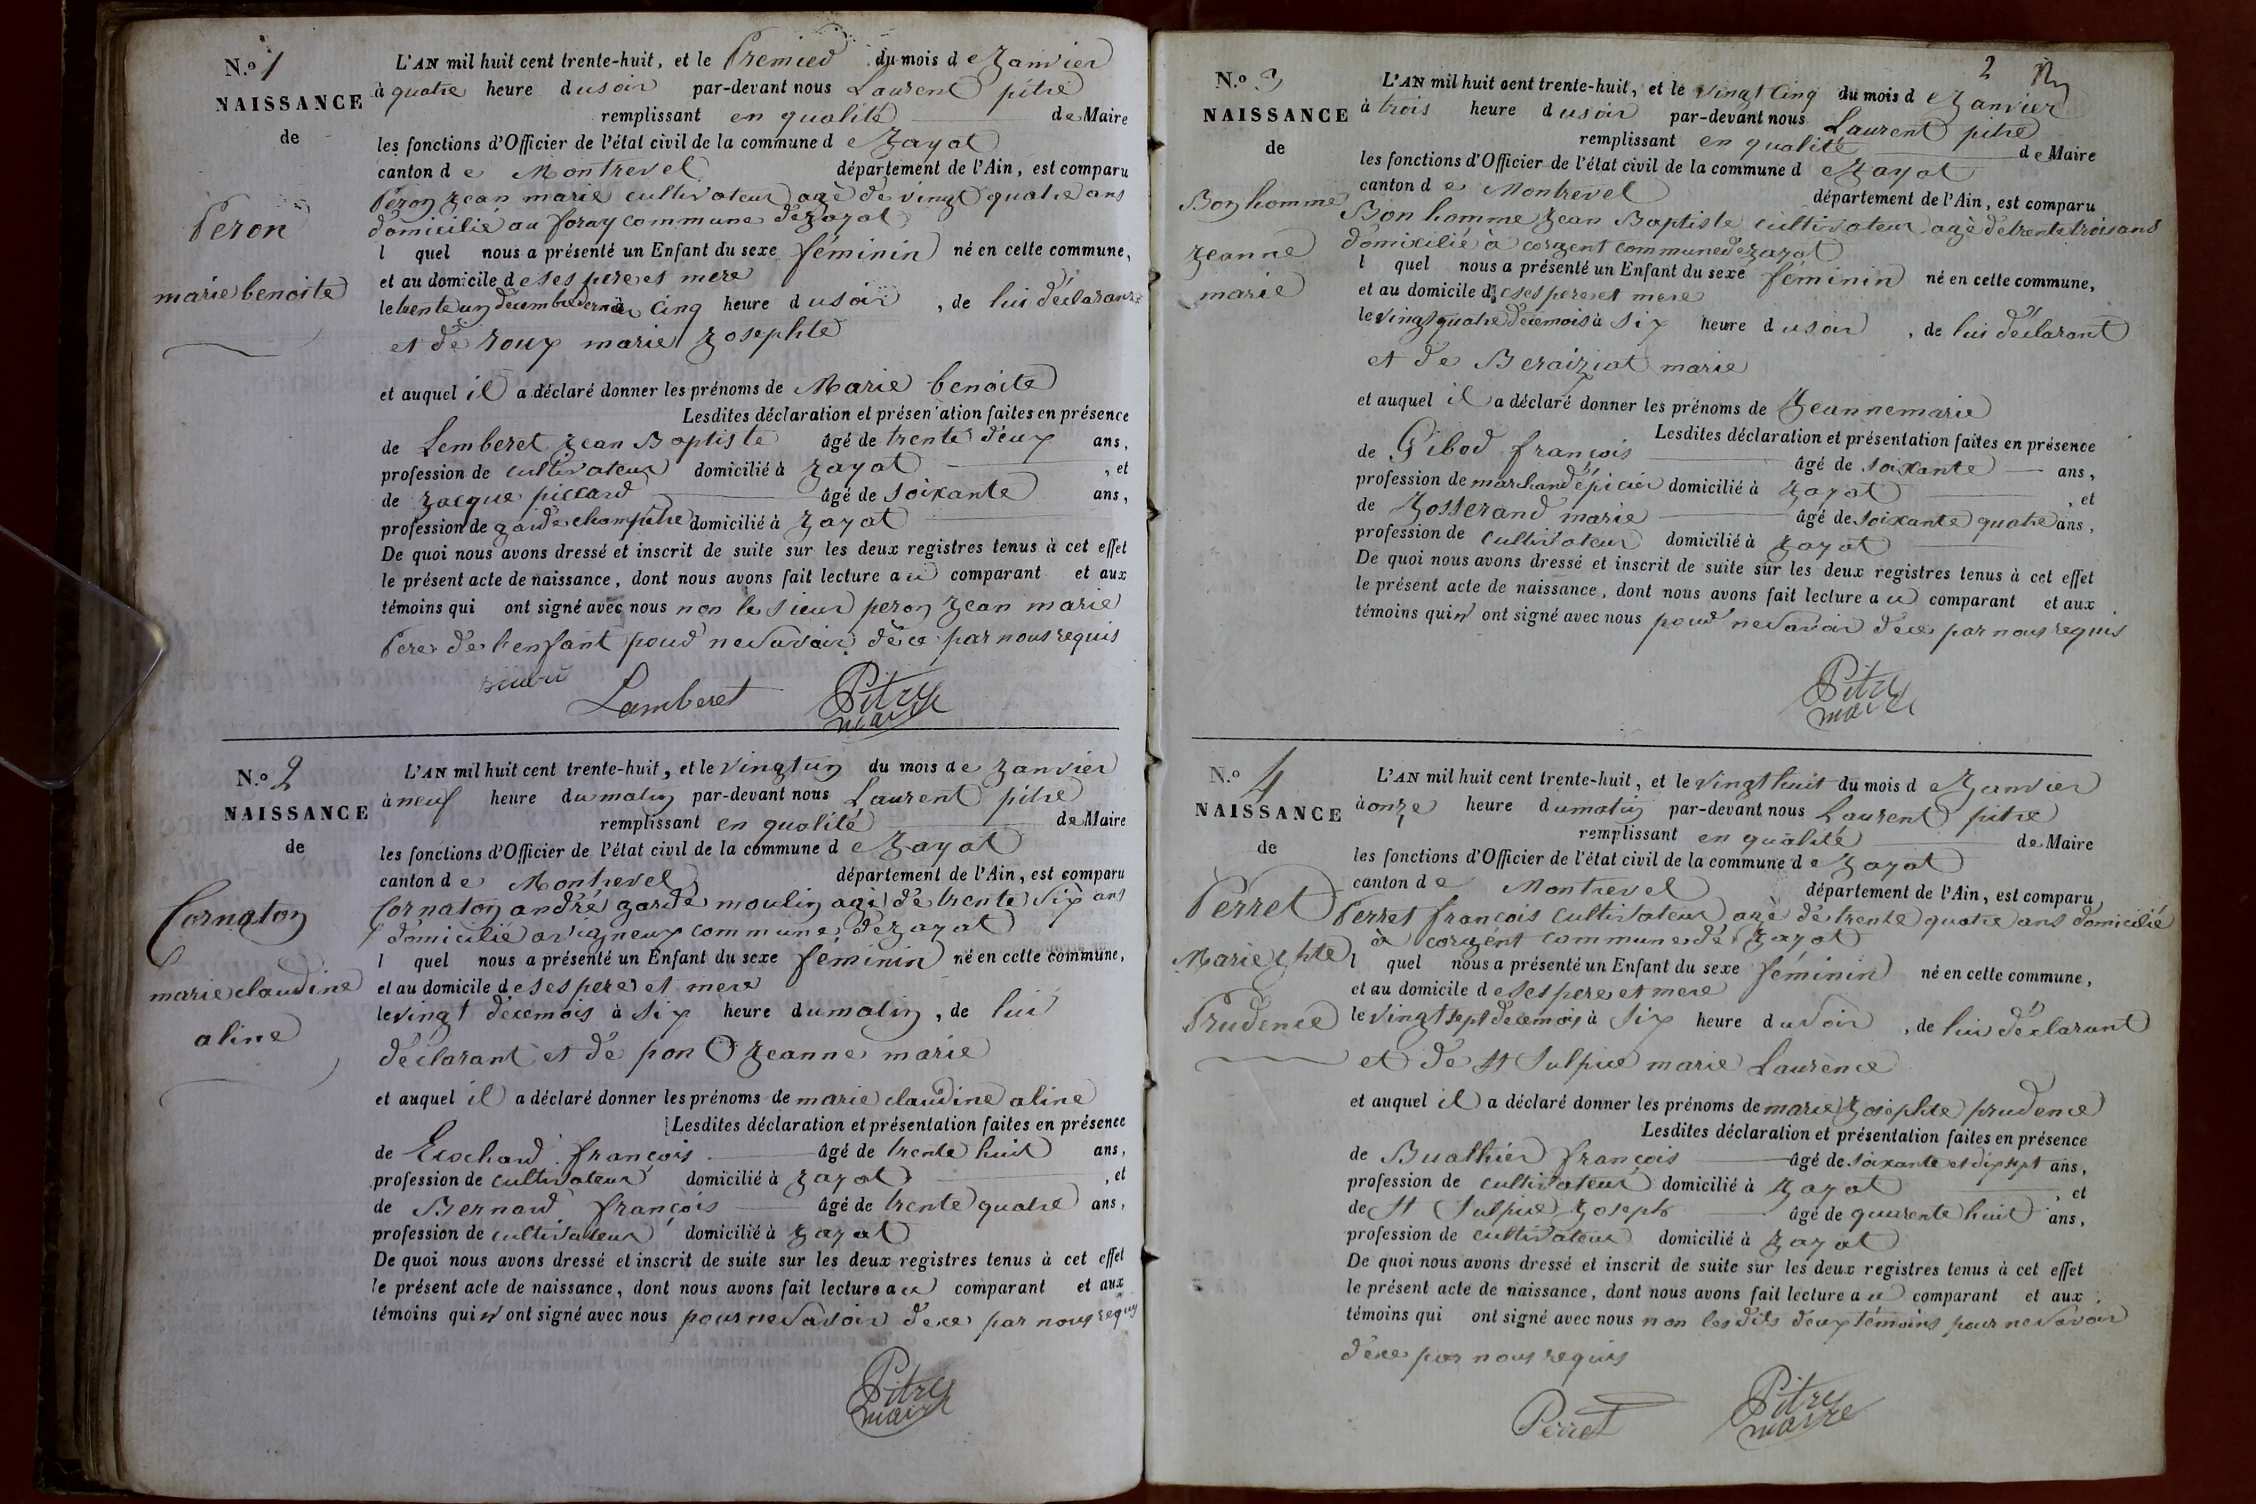 N.º 1
NAISSANCE
de
Peron
marie benoite
L'AN mil huit cent trente-huit, et le Premier du mois de Janvier
à quatre heure du soir par-devant nous Laurent pitre
remplissant en qualité de Maire
les fonctions d'Officier de l'état civil de la commune de Jayat
canton de Montrevel département de l'Ain, est comparu
Peron Jean marie cultivateur agé de vingt quatre ans
domicilié au foray commune de Jayat
l quel nous a présenté un Enfant du sexe féminin né en cette commune,
et au domicile de ses pere et mere
le trente un decembre dernier à Cinq heure du soir, de lui déclarant
et de roux marie Josephte
et auquel il a déclaré donner les prénoms de Marie benoite
Lesdites déclaration et présentation faites en présence
de Lemberet Jean Baptiste âgé de trente deux ans,
profession de cultivateur domicilié à Jayat, et
de Jacque piccard âgé de soixante ans,
profession de garde champetre domicilié à Jayat
De quoi nous avons dressé et inscrit de suite sur les deux registres tenus à cet effet
le présent acte de naissance, dont nous avons fait lecture au comparant et aux
témoins qui ont signé avec nous non le sieur peron Jean marie
Pere de l'enfant pour ne savoir de ce par nous requis
Lamberet Pitre
maire
N.º 2
NAISSANCE
de
Cornaton
marie claudine
aline
L'AN mil huit cent trente-huit, et le vingt un du mois de Janvier
à neuf heure du matin par-devant nous Laurent pitre
remplissant en qualité de Maire
les fonctions d'Officier de l'état civil de la commune de Jayat
canton de Montrevel département de l'Ain, est comparu
Cornaton andré garde moulin agé de trente six ans
domicilié a vigneux commune de Jayat
l quel nous a présenté un Enfant du sexe féminin né en cette commune,
et au domicile de ses pere et mere
le vingt de ce mois à six heure du matin, de lui
déclarant et de pon Jeanne marie
et auquel il a déclaré donner les prénoms de marie claudine aline
Lesdites déclaration et présentation faites en présence
de Ecochard françois âgé de trente huit ans,
profession de cultivateur domicilié à Jayat, et
de Bernard françois âgé de trente quatre ans,
profession de cultivateur domicilié à Jayat
De quoi nous avons dressé et inscrit de suite sur les deux registres tenus à cet effet
le présent acte de naissance, dont nous avons fait lecture au comparant et aux
témoins qui n' ont signé avec nous pour ne savoir de ce par nous requis
Pitre
maire
2
N.º 3
NAISSANCE
de
Bonhomme
Jeanne
marie
L'AN mil huit cent trente-huit, et le vingt Cinq du mois de Janvier
à trois heure du soir par-devant nous Laurent pitre
remplissant en qualité de Maire
les fonctions d'Officier de l'état civil de la commune de Jayat
canton de Montrevel département de l'Ain, est comparu
Bonhomme Jean Baptiste cultivateur agé de trente trois ans
domicilié à corgent commune de Jayat
l quel nous a présenté un Enfant du sexe féminin né en cette commune,
et au domicile de ses pere et mere
le vingt quatre de ce mois à six heure du soir, de lui déclarant
et de Beraiziat marie
et auquel il a déclaré donner les prénoms de Jeanne marie
Lesdites déclaration et présentation faites en présence
de Gibod françois âgé de soixante ans,
profession de marchand épicier domicilié à Jayat, et
de Josserand marie âgé de soixante quatre ans,
profession de cultivateur domicilié à Jayat
De quoi nous avons dressé et inscrit de suite sur les deux registres tenus à cet effet
le présent acte de naissance, dont nous avons fait lecture au comparant et aux
témoins qui n' ont signé avec nous pour ne savoir de ce par nous requis
Pitre
maire
N.º 4
NAISSANCE
de
Perret
Marie Jphte
Prudence
L'AN mil huit cent trente-huit, et le vingt huit du mois de Janvier
à onze heure du matin par-devant nous Laurent pitre
remplissant en qualité de Maire
les fonctions d'Officier de l'état civil de la commune de Jayat
canton de Montrevel département de l'Ain, est comparu
Perret françois cultivateur agé de trente quatre ans domicilié
à corgent commune de Jayat
l quel nous a présenté un Enfant du sexe féminin né en cette commune,
et au domicile de ses pere et mere
le vingt sept de ce mois à six heure du soir, de lui déclarant
et de St Sulpice marie Laurence
et auquel il a déclaré donner les prénoms de marie Josephte prudence
Lesdites déclaration et présentation faites en présence
de Buathier françois âgé de soixante et dix sept ans,
profession de cultivateur domicilié à Jayat, et
de St Sulpice Joseph âgé de quarente huit ans,
profession de cultivateur domicilié à Jayat
De quoi nous avons dressé et inscrit de suite sur les deux registres tenus à cet effet
le présent acte de naissance, dont nous avons fait lecture au comparant et aux
témoins qui ont signé avec nous non les dits deux témoins pour ne savoir
de ce par nous requis
Perret Pitre
maire